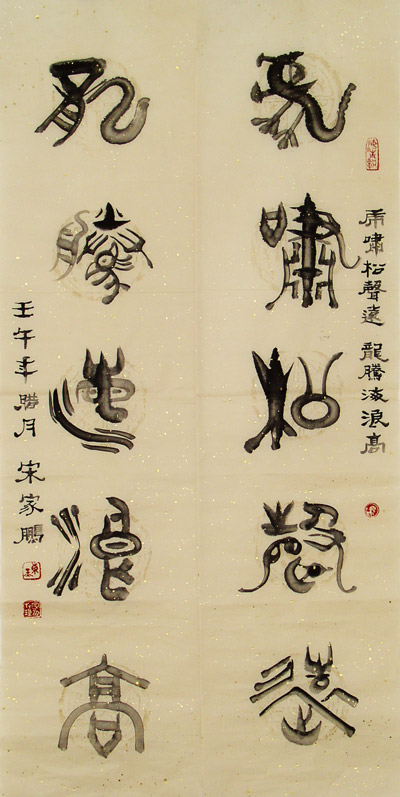 虎嘯松聲遠 龍騰海浪高
虎嘯松聲遠
龍騰海浪高
壬午年腊月 宋家鵬